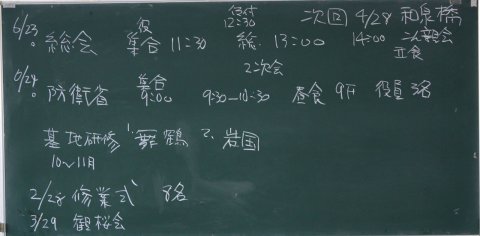 次回 4/28 和泉橋
14:00 立食
受付 12:30
6/23 総会 役 集合 11:30 総 13:00
2次会
6/24 防衛省 集合 9:00 9:30-10:30 昼食 9F 役員3名
基地研修 1. 舞鶴 2. 岩国
10~11月
2/28 修業式 8名
3/29 観桜会